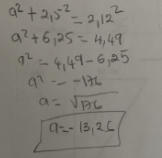 a² + 2,5⁻² = 2,12²
a² + 6,25 = 4,49
a² = 4,49 - 6,25
a² = -176
a = √176
a = -13,26